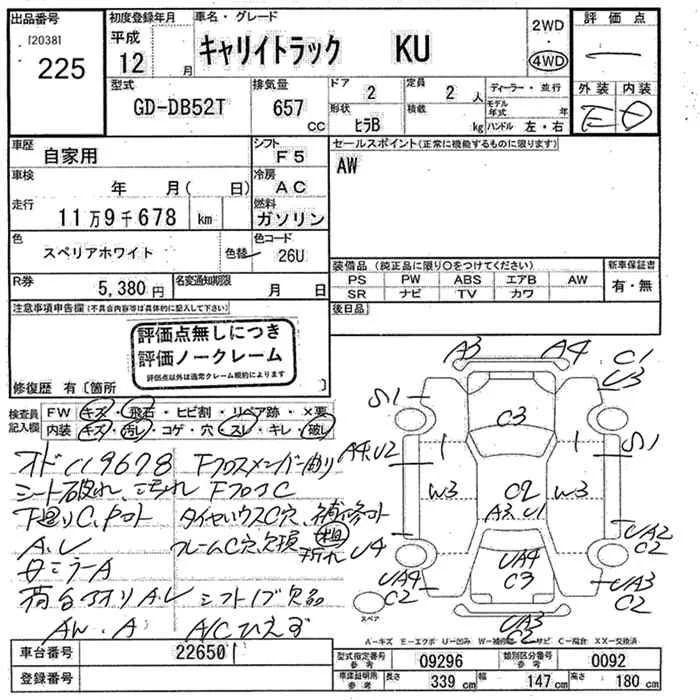 出品番号
120381
225
初度登録年月
平成
12 月
車名・グレード
キャリイトラック KU
2WD
・
4WD
評価点
外装 内装
E D
型式
GD-DB52T
排気量
657
CC
ドア
2
形状
ヒラB
定員
2 人
積載
kg
ディーラー・並行
モデル年式 年
ハンドル 左・右
車歴
自家用
シフト
F5
車検
年 月( 日)
冷房
AC
走行
11万9千678 km
燃料
ガソリン
色
スペリアホワイト
色替
色コード
26U
R券
5,380 円
名変通知期限
月 日
セールスポイント(正常に機能するものに限ります)
AW
装備品(純正品に限り○をつけてください)
PS PW ABS エアB AW
SR ナビ TV カワ
新車保証書
有・無
後日品
注意事項申告欄(不具合内容等は具体的に記入して下さい)
評価点無しにつき
評価ノークレーム
評価点以外は通常クレーム規約によります
修復歴 有〔箇所 〕
検査員
記入欄
FW キズ・飛石・ヒビ割・リペア跡・×要
内装 キズ・汚れ・コゲ・穴・スレ・キレ・破レ
オドC119678 Fクロスメンバー曲り
シート破れ、汚れ FフロアC
下廻りC、Pボト タイヤハウスC穴、補修ボト
A、U フレームC穴、欠損 折れ
ミラーA
荷台アオリA、U シフトノブ欠品
AW、A A/Cひえず
A3 A4
C1
U3
S1
C3
A4、U2
S1
W3
C2
A3 U1
W3
U4
UA4
C3
UA2
C2
UA4
C2
UA3
C2
スペア
UA3
C2
A-キズ E-エクボ U-凹み W-補修跡 S-サビ C-腐食 XX-交換済
車台番号 226501
登録番号
型式指定番号
参考
09296
類別区分番号
参考
0092
車庫証明用
参考
長さ 339 cm 幅 147 cm 高さ 180 cm